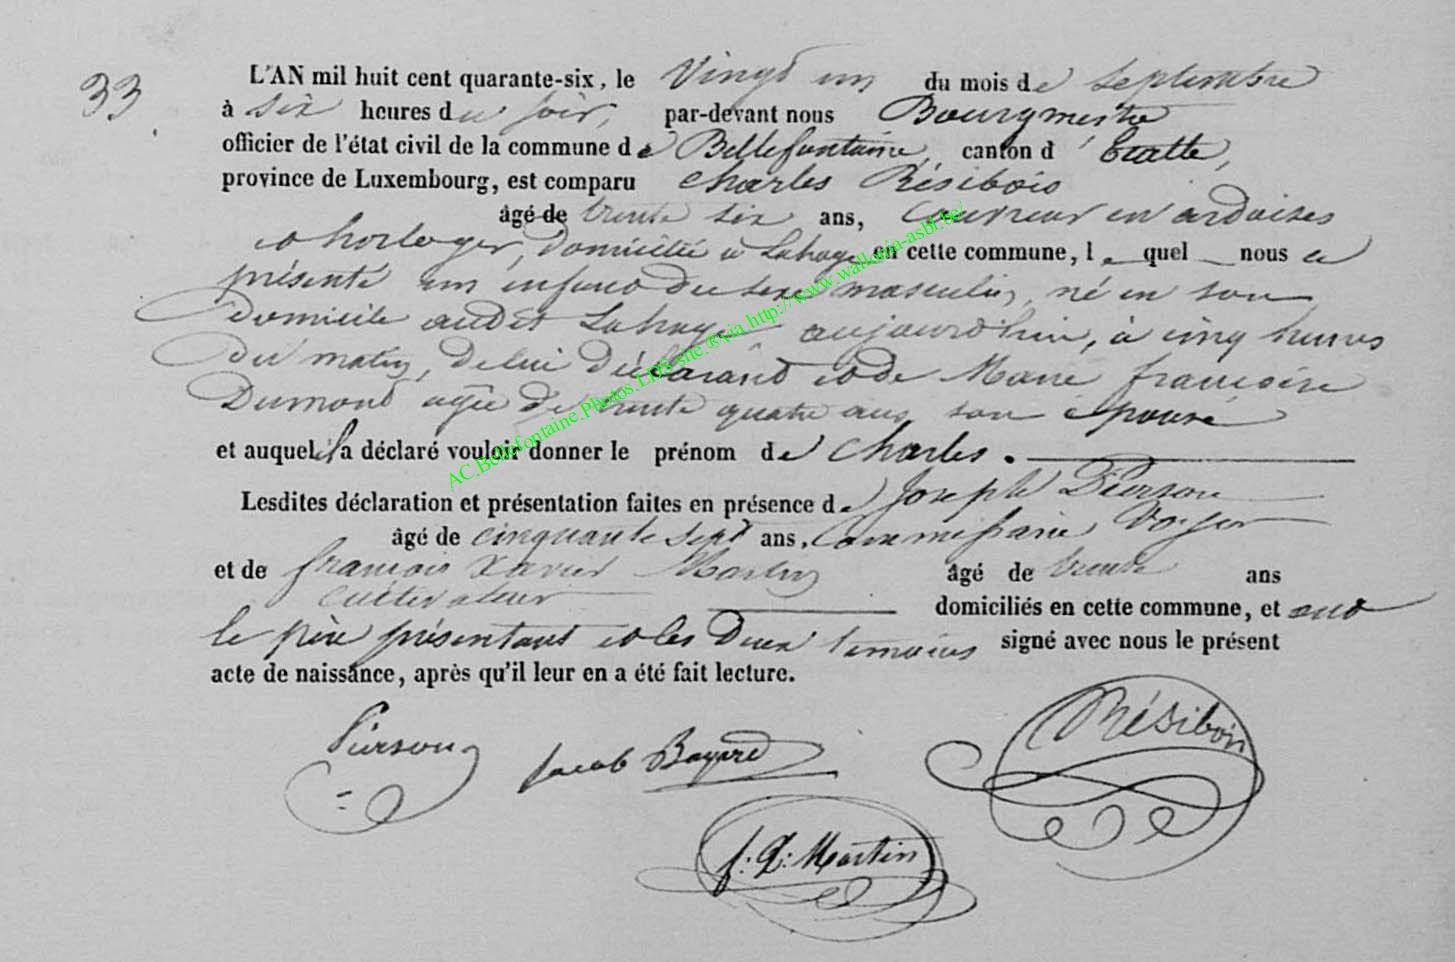 33.
L'AN mil huit cent quarante-six, le Vingt un du mois de septembre
à six heures du soir, par-devant nous Bourgmestre
officier de l'état civil de la commune de Bellefontaine, canton d'Etalle,
province de Luxembourg, est comparu Charles Résibois
âgé de trente six ans, Couvreur en ardoises
et horloger, domicilié à Lahage en cette commune, lequel nous a
présenté un enfant du sexe masculin, né en son
domicile audit Lahage aujourd'hui, à cinq heures
du matin, de lui déclarant et de Marie françoise
Dumont agée de trente quatre ans son épouse
et auquel il a déclaré vouloir donner le prénom de Charles.
Lesdites déclaration et présentation faites en présence de Joseph Pierson
âgé de cinquante sept ans, Commissaire Voyer
et de françois Xavier Martin âgé de trente ans
cultivateur domiciliés en cette commune, et ont
le père présentant et les deux témoins signé avec nous le présent
acte de naissance, après qu'il leur en a été fait lecture.
Pierson Jacob Bayard Résibois
f. X. Martin
AC.Bellefontaine.Photos.LDS-snc.®via http://www.wallonia-asbl.be/